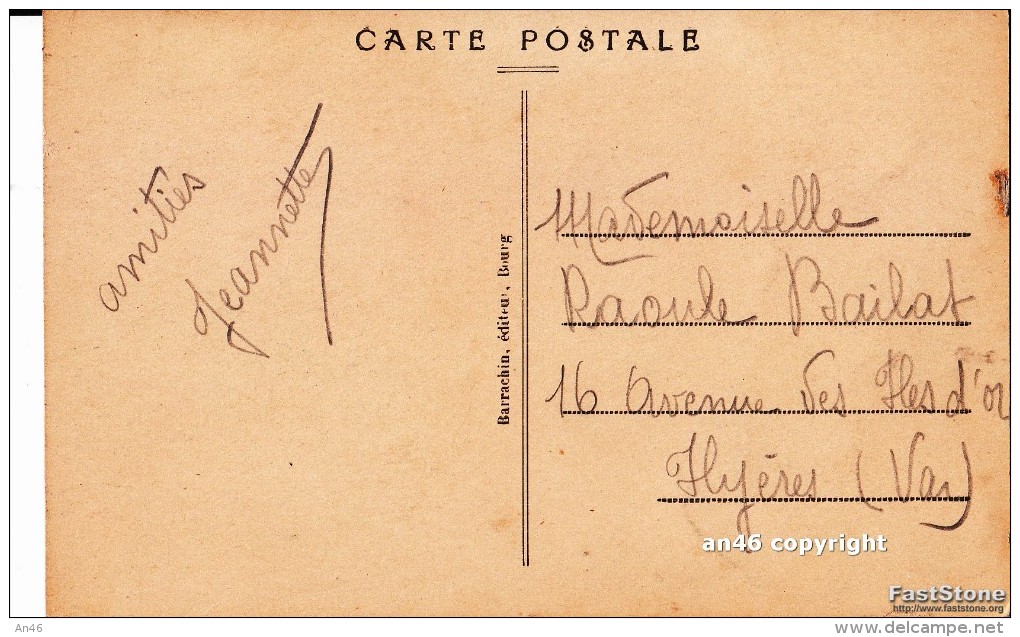 CARTE POSTALE
amitiés
Jeannette
Barrachin, éditeur, Bourg
Mademoiselle
Raoule Bailat
16 Avenue des Iles d'or
Hyères (Var)
an46 copyright
FastStone
http://www.faststone.org
An46
delcampe.net